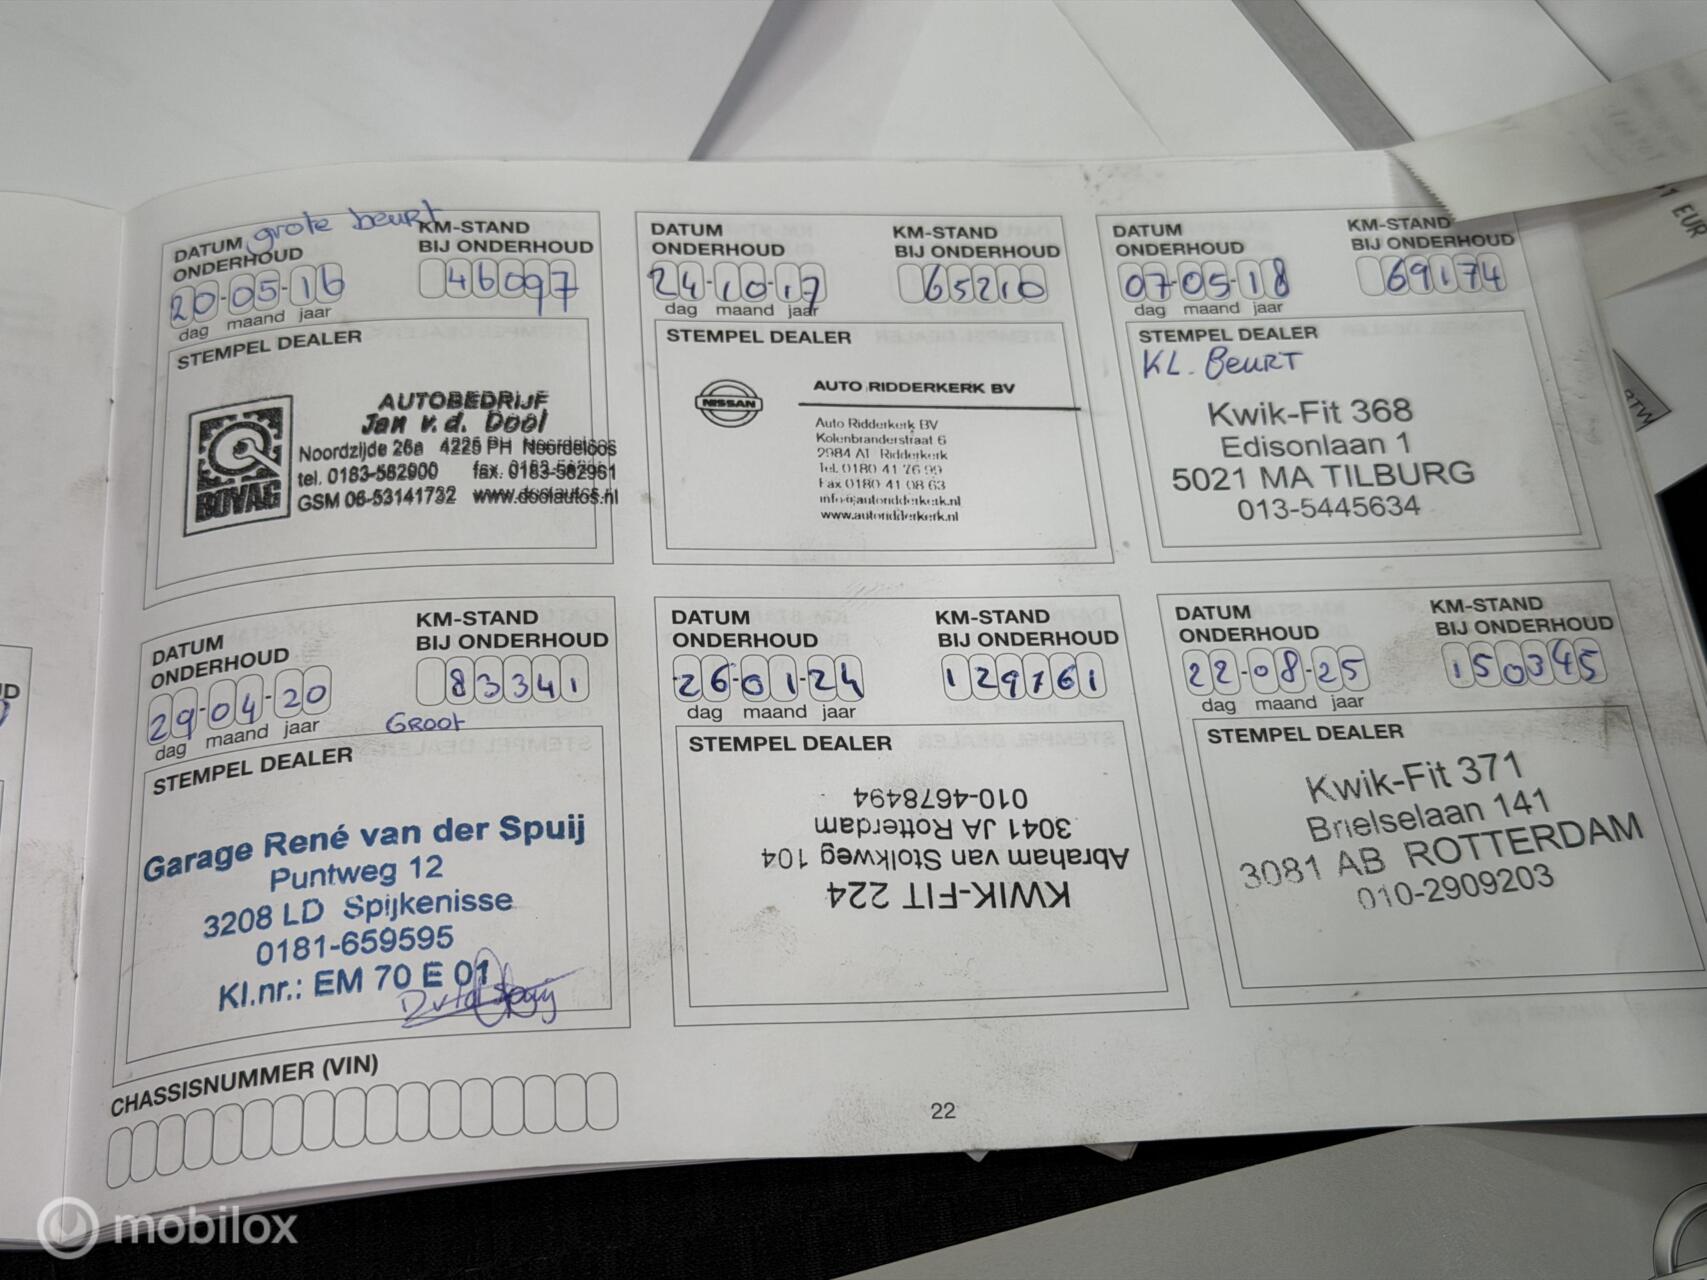 grote beurt
DATUM
ONDERHOUD
KM-STAND
BIJ ONDERHOUD
20-05-16
46097
dag maand jaar
STEMPEL DEALER
BOVAG
AUTOBEDRIJF
Jan v.d. Dool
Noordzijde 26a 4225 PH Noordeloos
tel. 0183-582900 fax. 0183-582961
GSM 06-53141732 www.doolautos.nl
DATUM
ONDERHOUD
KM-STAND
BIJ ONDERHOUD
24-10-17
65210
dag maand jaar
STEMPEL DEALER
NISSAN
AUTO RIDDERKERK BV
Auto Ridderkerk BV
Kolenbranderstraat 6
2984 AT Ridderkerk
Tel. 0180 41 76 99
Fax 0180 41 08 63
info@autoridderkerk.nl
www.autoridderkerk.nl
DATUM
ONDERHOUD
KM-STAND
BIJ ONDERHOUD
07-05-18
69174
dag maand jaar
STEMPEL DEALER
KL. Beurt
Kwik-Fit 368
Edisonlaan 1
5021 MA TILBURG
013-5445634
DATUM
ONDERHOUD
KM-STAND
BIJ ONDERHOUD
29-04-20
83341
dag maand jaar
Groot
STEMPEL DEALER
Garage René van der Spuij
Puntweg 12
3208 LD Spijkenisse
0181-659595
Kl.nr.: EM 70 E 01
DATUM
ONDERHOUD
KM-STAND
BIJ ONDERHOUD
26-01-24
129761
dag maand jaar
STEMPEL DEALER
KWIK-FIT 224
Abraham van Stolkweg 104
3041 JA Rotterdam
010-4678494
DATUM
ONDERHOUD
KM-STAND
BIJ ONDERHOUD
22-08-25
150345
dag maand jaar
STEMPEL DEALER
Kwik-Fit 371
Brielselaan 141
3081 AB ROTTERDAM
010-2909203
CHASSISNUMMER (VIN)
22
EUR
BTW
mobilox